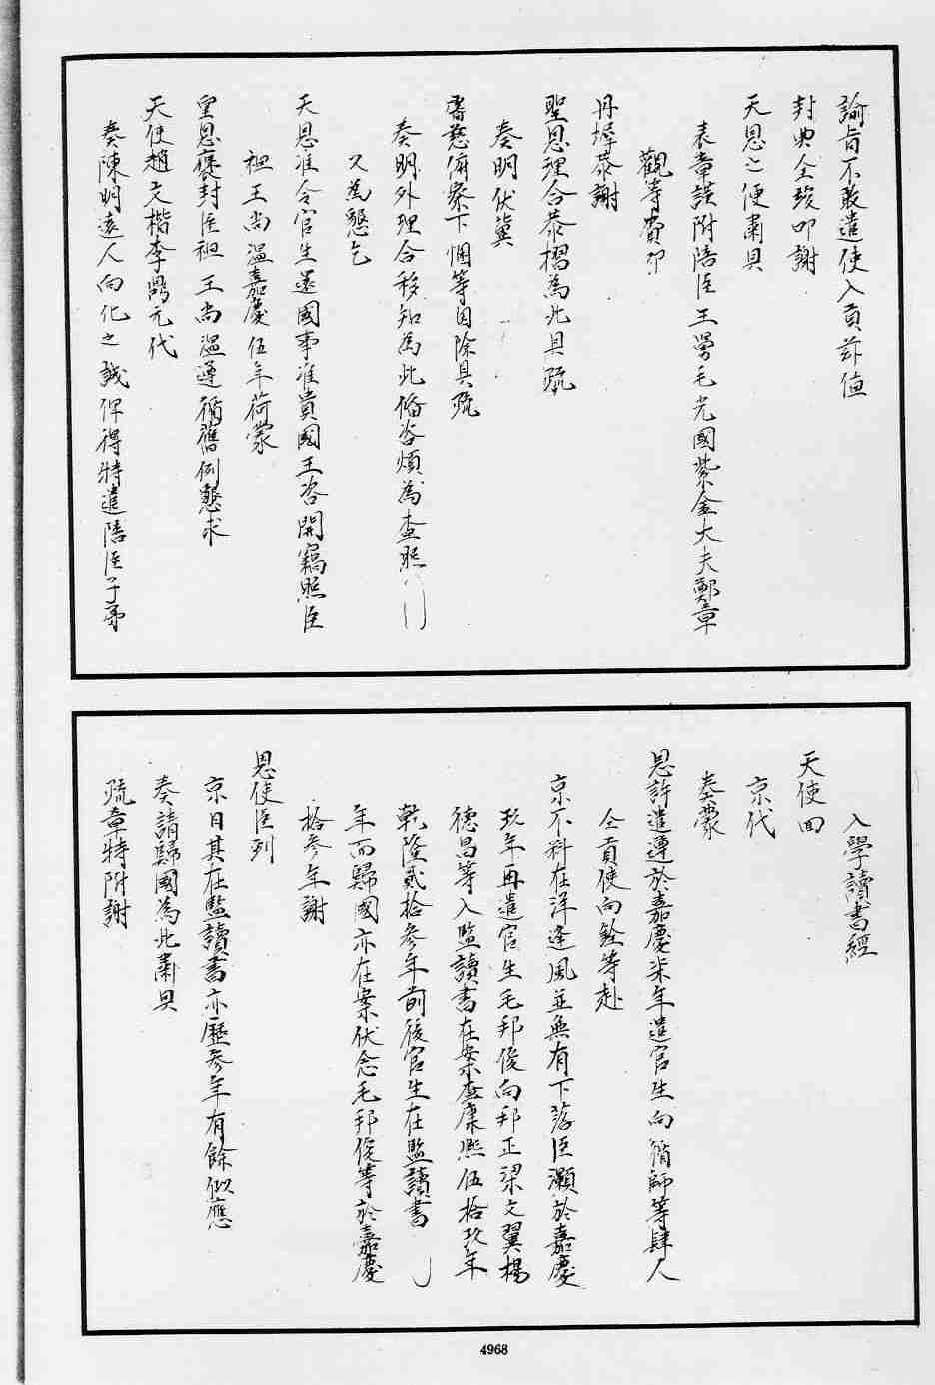 諭旨不敢遣使入貢茲值
封典全竣叩謝
天恩之便肅具
表章謹附陪臣王 毛光國紫金大夫鄭章
觀等賫叩
丹墀恭謝
聖恩理合恭摺為此具疏
奏明伏冀
睿慈俯察下悃等因除具疏
奏明外理合移知為此備咨煩為查照
又為懇乞
天恩准令官生還國事准貴國王咨開竊照臣
祖王尚溫嘉慶伍年荷蒙
皇恩褒封臣祖王尚溫遵循舊例懇求
天使趙文楷李鼎元代
奏陳明遠人向化之誠俾得特遣陪臣子弟
入學讀書經
天使回
京代
奏蒙
恩許遣遵於嘉慶柒年遣官生向循師等肆人
仝貢使向銓等赴
京不料在洋逢風並無有下落臣灝於嘉慶
玖年再遣官生毛邦俊向邦正梁文翼楊
德昌等入監讀書在案查康熙伍拾玖年
乾隆貳拾參年前後官生在監讀書
年而歸國亦在案伏念毛邦俊等於嘉慶
拾參年謝
恩使臣列
京日其在監讀書亦歷參年有餘似應
奏請歸國為此肅具
疏章特附謝
4968